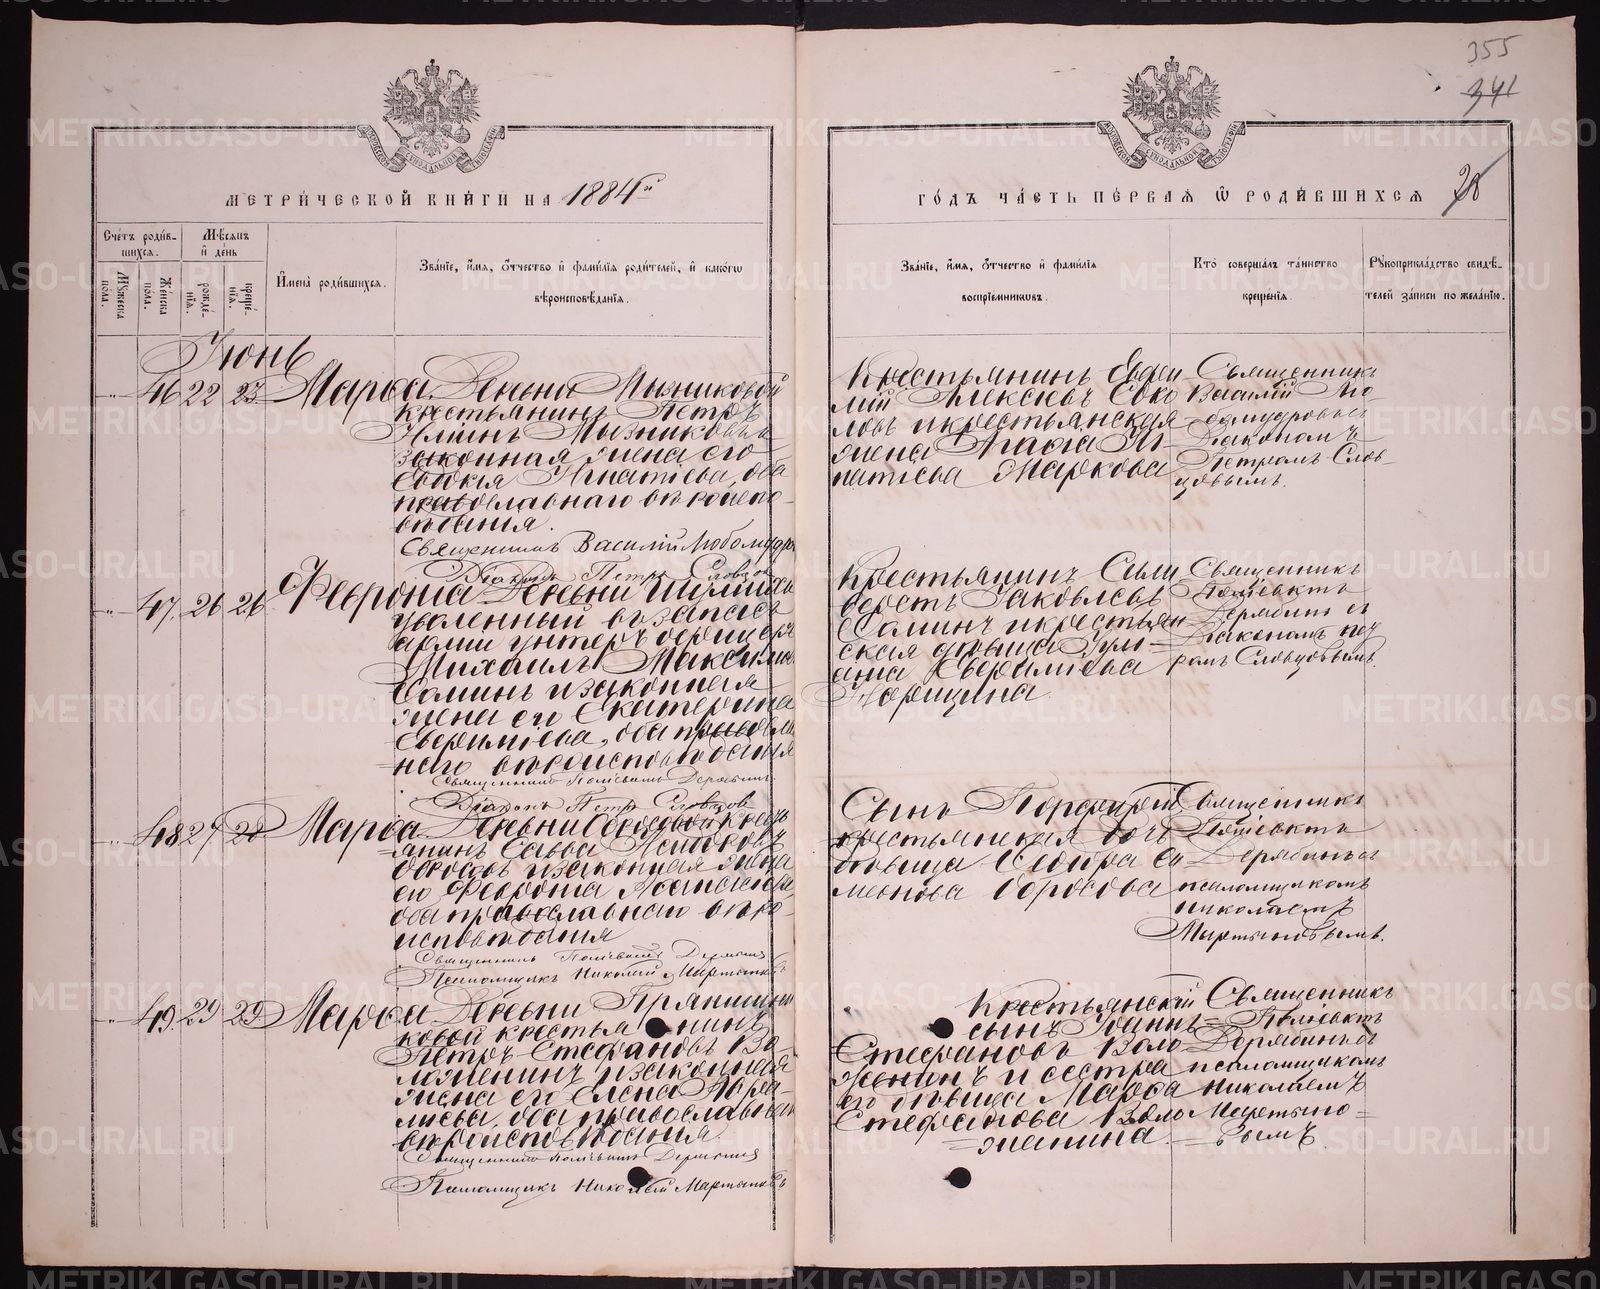 355
341
МЕТРИ́ЧЕСКОЙ КНИ́ГИ НА 1884й
ГО́ДЪ ЧА́СТЬ ПЕ́РВАЯ Ѿ РОДИ́ВШИХСЯ 28
Сче́тъ роди́в-
шихся.
Мѣсяцъ
и де́нь
Мꙋжеска пола.
Женска пола.
рожде́-
нія.
креще́-
нія.
Имена роди́вшихся.
Зва́ніе, и́мя, ѻ́тчество и фами́лія роди́телей, и како́гѡ
вѣроисповѣ́данія.
Зва́ніе, и́мя, ѻ́тчество и фами́лія
воспріе́мникѡвъ.
Кто̀ соверша́лъ та́инство
креще́нія.
Рꙋкоприкла́дство свидѣ́-
телей за́писи по жела́нію.
Іюнь
46 22 23 Марѳа Деревни Мызниковой
крестьянинъ Петръ
Мызниковъ
законная жена его
Евдокія Игнатіева, оба
православнаго вѣроиспо-
вѣданія.
Священникъ Василій Любомудровъ
Діаконъ Петръ Словцовъ
Крестьянинъ
Алексѣевъ Соко
ловъ и крестьянская
жена Иг-
натіева Маркова
Священникъ
Василій Лю-
бомудровъ съ
Діакономъ
Петромъ Слов-
цовымъ.
47. 26 26 Февронія Деревни
уволенный въ запасъ
арміи унтеръ офицеръ
Михаилъ Максимовъ
Соминъ и законная
жена его Екатерина
оба православ
наго вѣроисповѣданія
Священникъ Поліевктъ Дерябинъ
Діаконъ Петръ Словцовъ
Крестьянинъ Сели
верстъ Яковлевъ
Соминъ и крестьян
ская дѣвица Іулі-
ана
Священникъ
Поліевктъ
Дерябинъ съ
Діакономъ Пет
ромъ Словцовымъ.
48 27 28 Марѳа Деревни кресть
янинъ Савва
и законная жена
его Февронія
оба православнаго вѣро-
исповѣданія
Священникъ Поліевктъ Дерябинъ
Псаломщикъ Николай Мартыновъ
Сынъ Порфирій
крестьянская
дѣвица
Священникъ
Поліевктъ
Дерябинъ съ
псаломщикомъ
Николаемъ
Мартыновымъ.
49. 29 29 Марѳа Деревни Прянични
ковой крестьянинъ
Петръ Стефановъ Во-
ложенинъ и законная
жена его Елена
оба православнаго
вѣроисповѣданія.
Священникъ Поліевктъ Дерябинъ
Псаломщикъ Николай Мартыновъ
Крестьянскій
сынъ Іоаннъ
Стефановъ Воло
женинъ и сестра
его дѣвица Марѳа
Стефанова Воло
женина
Священникъ
Поліевктъ
Дерябинъ съ
псаломщикомъ
Николаемъ
Мартыно-
вымъ.
METRIKI.GASO-URAL.RU